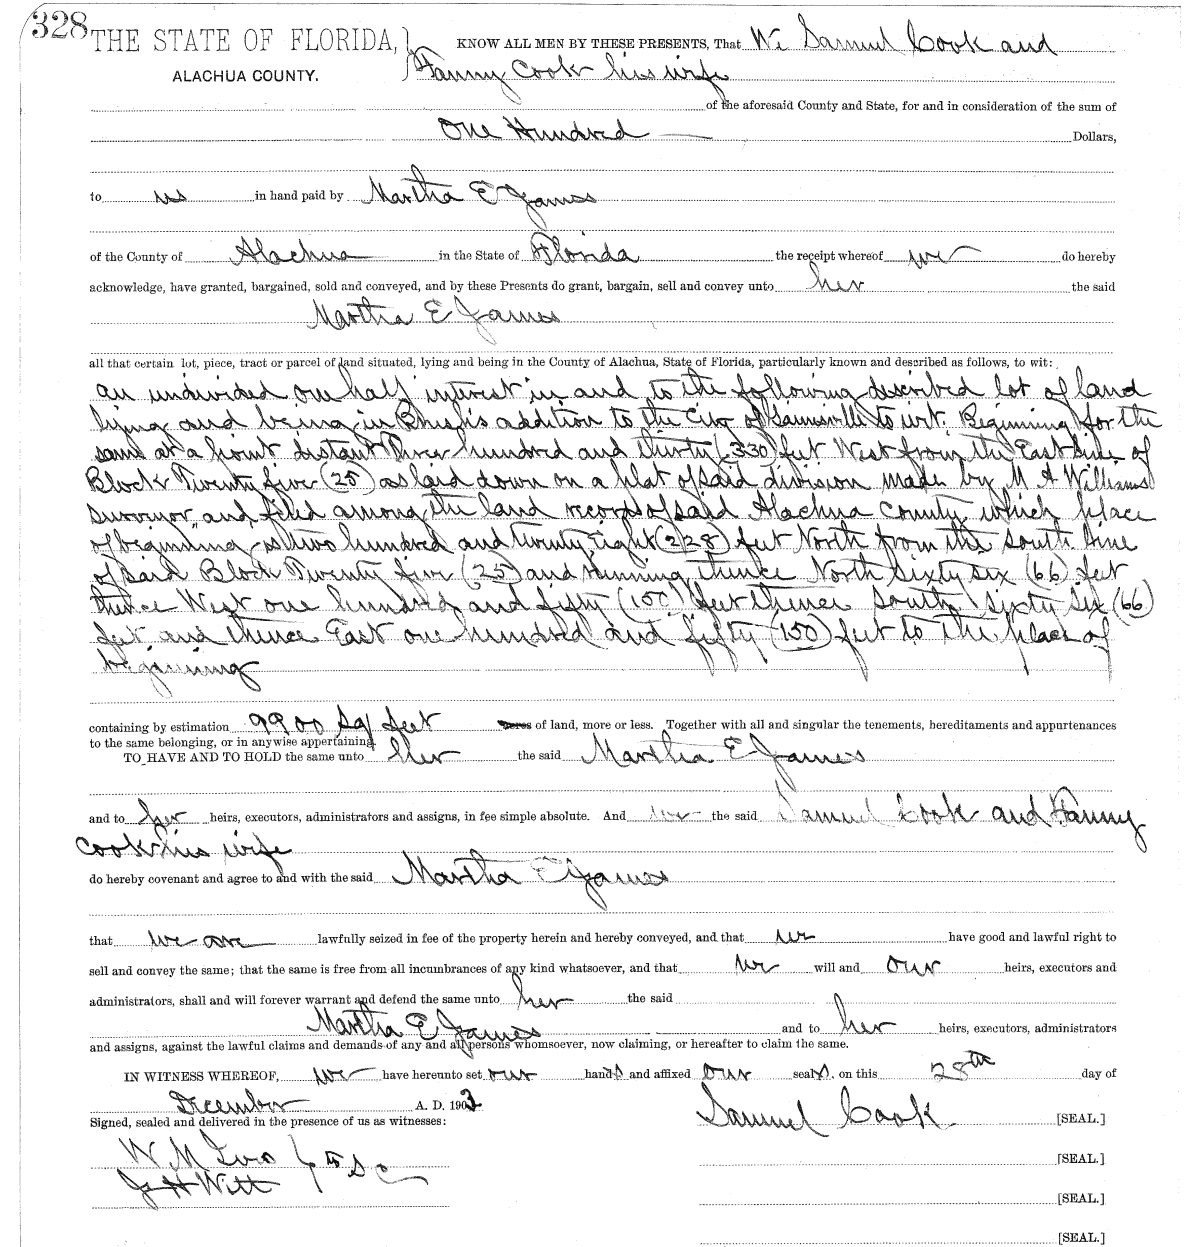 328
THE STATE OF FLORIDA,} KNOW ALL MEN BY THESE PRESENTS, That We Samuel Cook and
ALACHUA COUNTY. Fanny Cook his wife
of the aforesaid County and State, for and in consideration of the sum of
One Hundred Dollars,
to us in hand paid by Martha E James
of the County of Alachua in the State of Florida the receipt whereof we do hereby
acknowledge, have granted, bargained, sold and conveyed, and by these Presents do grant, bargain, sell and convey unto her the said
Martha E James
all that certain lot, piece, tract or parcel of land situated, lying and being in the County of Alachua, State of Florida, particularly known and described as follows, to wit:
an undivided one half interest in and to the following described lot of land
lying and being in addition to the City of Gainsville to wit. Beginning for the
same at a point distant Three hundred and thirty (330) feet West from the East line of
Block Twenty five (25) as laid down on a plat of said division made by M A Williams
Survivor, and filed among the land records of said Alachua County, which place
of beginning is two hundred and twenty eight (228) feet North from the South line
of said Block Twenty five (25) and running thence North Sixty six (66) feet
thence West one hundred and fifty (150) feet thence South Sixty Six (66)
feet and thence East one hundred and fifty (150) feet to the place of
beginning
containing by estimation 9900 Sq feet acres of land, more or less. Together with all and singular the tenements, hereditaments and appurtenances
to the same belonging, or in anywise appertaining.
TO HAVE AND TO HOLD the same unto her the said Martha E James
and to her heirs, executors, administrators and assigns, in fee simple absolute. And we the said Samuel Cook and Fanny
Cook his wife
do hereby covenant and agree to and with the said Martha E James
that we are lawfully seized in fee of the property herein and hereby conveyed, and that we have good and lawful right to
sell and convey the same; that the same is free from all incumbrances of any kind whatsoever, and that we will and our heirs, executors and
administrators, shall and will forever warrant and defend the same unto her the said
Martha E James and to her heirs, executors, administrators
and assigns, against the lawful claims and demands of any and all persons whomsoever, now claiming, or hereafter to claim the same.
IN WITNESS WHEREOF, we have hereunto set our hands and affixed our seals. on this 28th day of
December A. D. 1903
Signed, sealed and delivered in the presence of us as witnesses: Samuel Cook [SEAL.]
W M [SEAL.]
J H Witt [SEAL.]
[SEAL.]